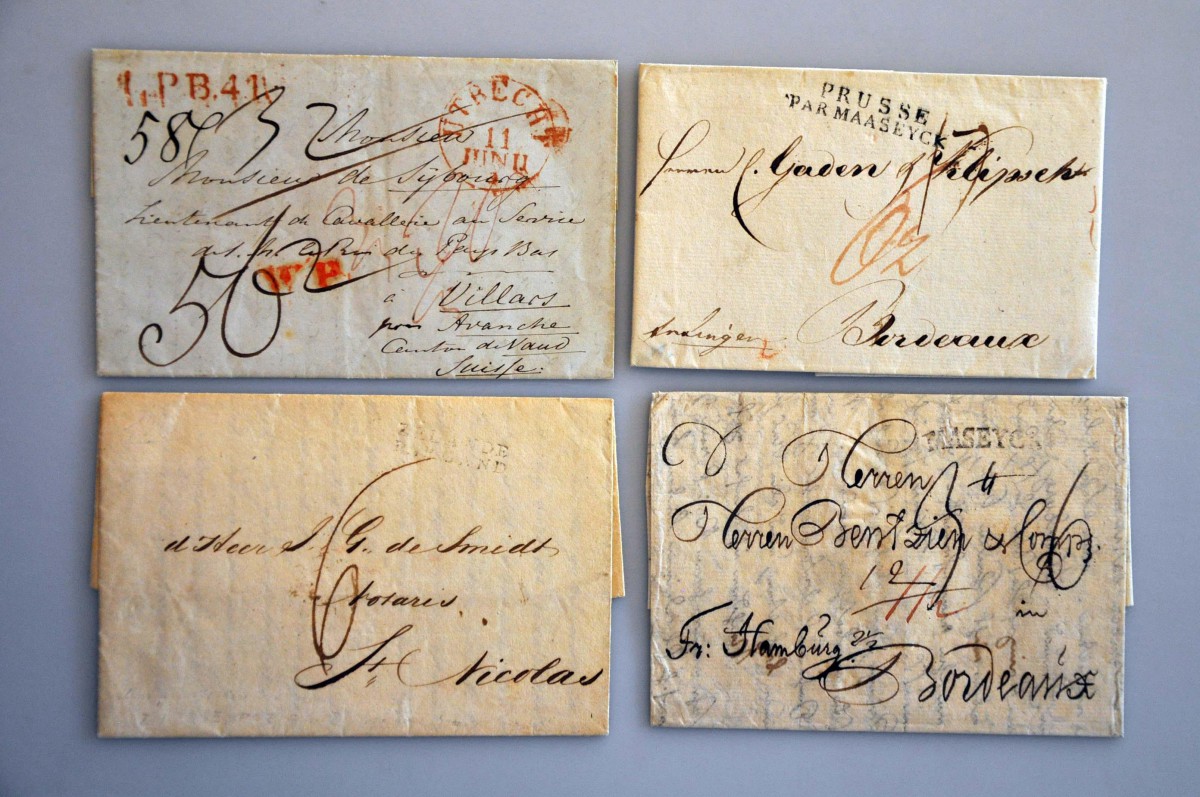 L.P.B.4.R
UTRECHT
11
JUNIJ
58
Monsieur
Monsieur de Sijbourg
Lieutenant de Cavallerie au Service
de S. M. le Roi des Pays Bas
à Villars
pour Avanche
Canton de Vaud
Suisse.
50
PRUSSE
PAR MAASEYCK
Herren C. Gaden & Klipsch
Bordeaux
ZELANDE
d'Heer J. G. de Smidt
Notaris.
St. Nicolas
6
MAASEYCK
Herren
Herren Bentzien & Comp.
in
Fr: Hamburg
Bordeaux